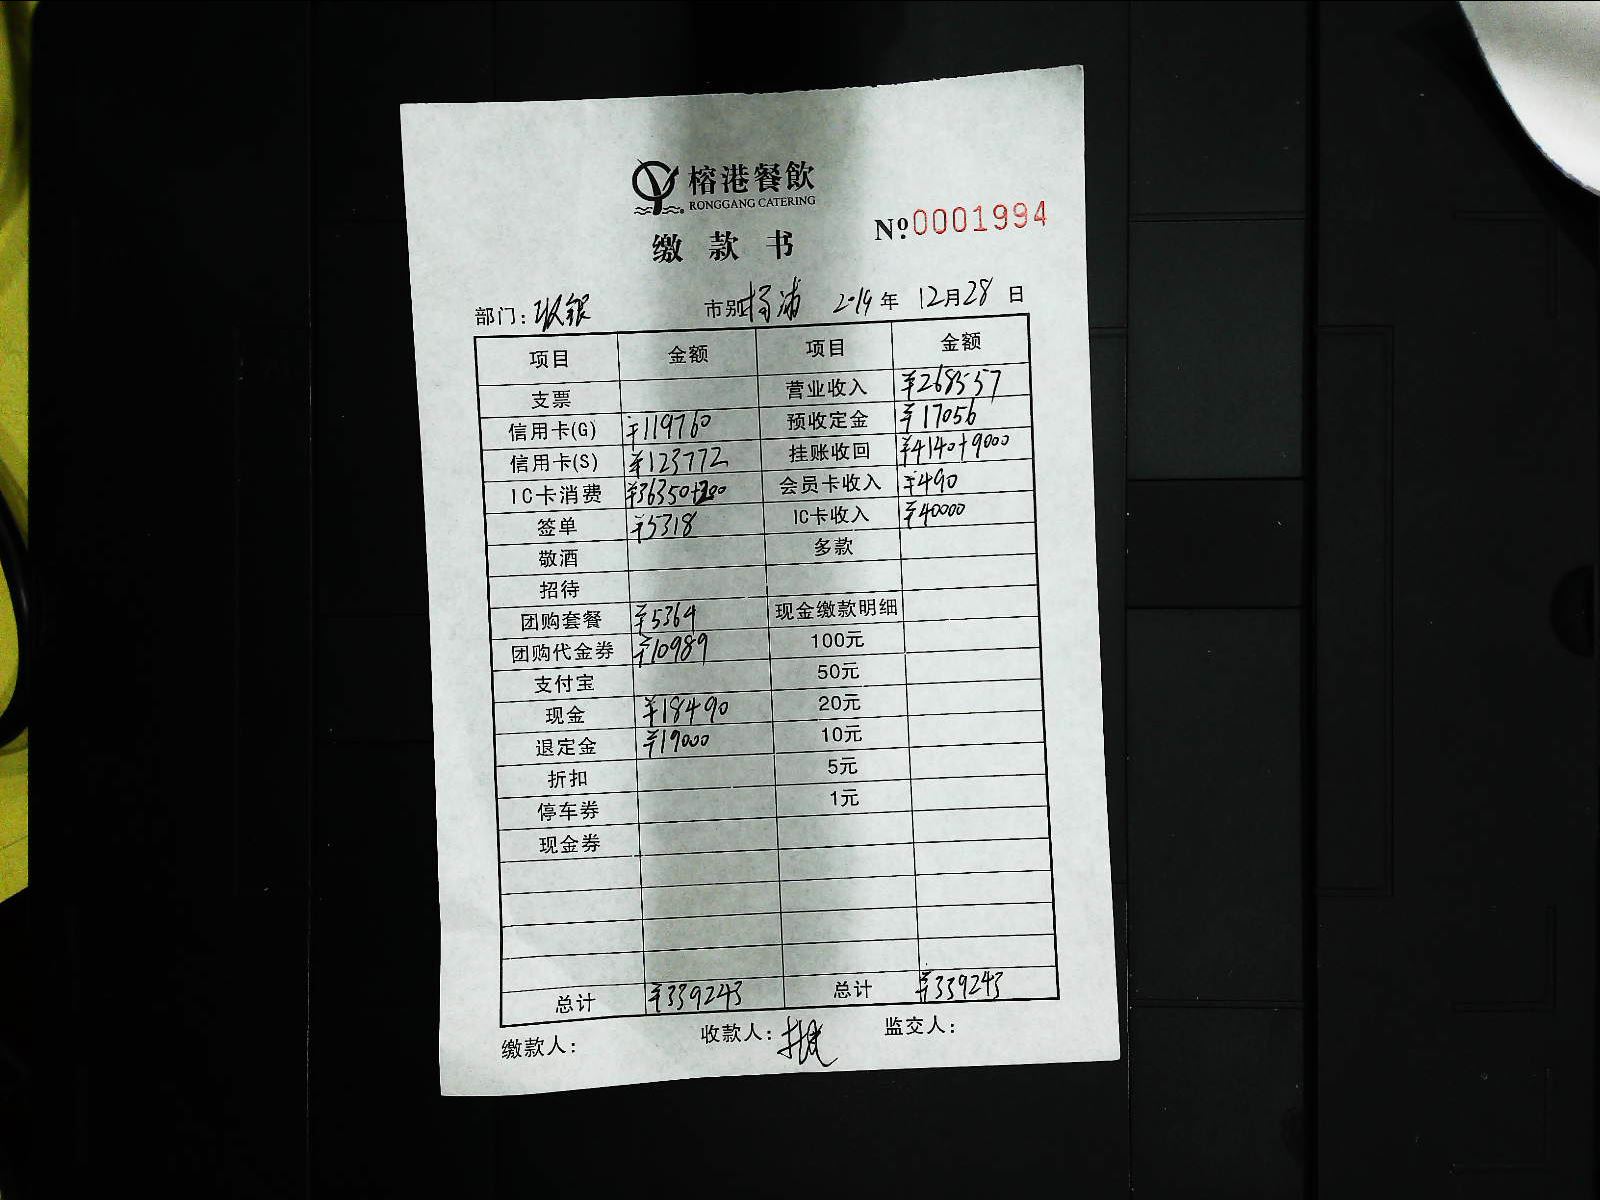 榕港餐飲
RONGGANG CATERING
缴款书
Nº 0001994
部门：收银 市别 杨浦 2019年 12月28日
项目 金额 项目 金额
支票 营业收入 ¥268557
信用卡(G) ¥119760 预收定金 ¥17056
信用卡(S) ¥123772 挂账收回 ¥4140+9000
IC卡消费 ¥36350+200 会员卡收入 ¥490
签单 ¥5318 IC卡收入 ¥40000
敬酒 多款
招待
团购套餐 ¥5364 现金缴款明细
团购代金券 ¥10989 100元
支付宝 50元
现金 ¥18490 20元
退定金 ¥19000 10元
折扣 5元
停车券 1元
现金券
总计 ¥339243 总计 ¥339243
缴款人： 收款人： 监交人：